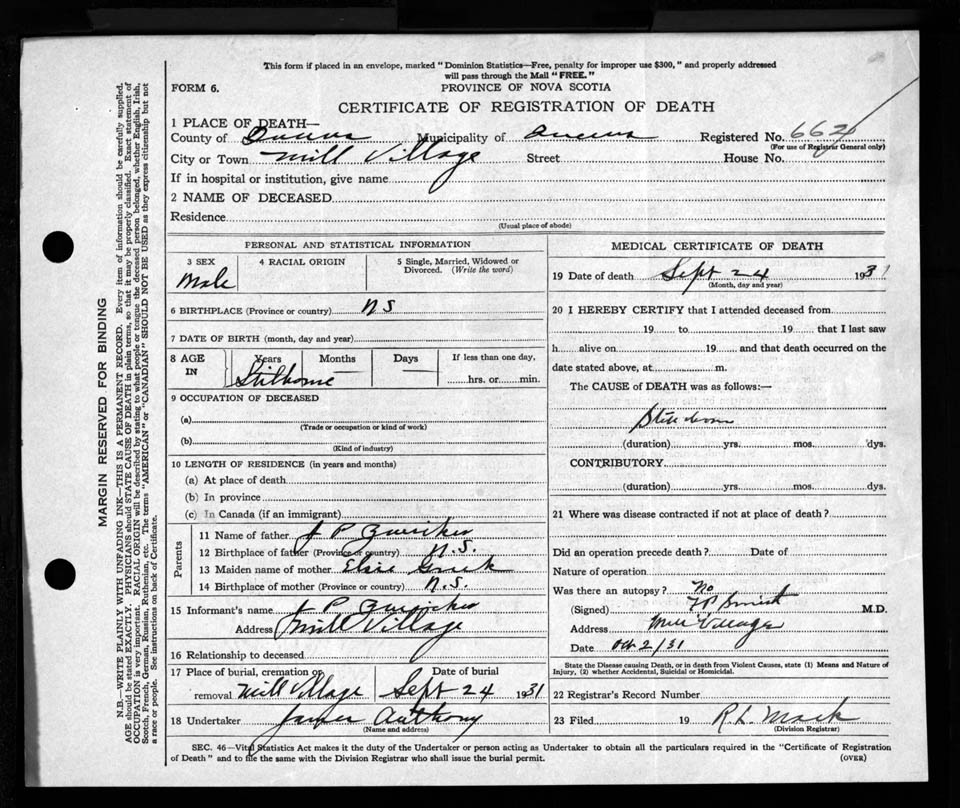 This form if placed in an envelope, marked "Dominion Statistics—Free, penalty for improper use $300," and properly addressed
will pass through the Mail "FREE."
FORM 6.
PROVINCE OF NOVA SCOTIA
CERTIFICATE OF REGISTRATION OF DEATH
1 PLACE OF DEATH—
County of Queens Municipality of Queens Registered No. 662
(For use of Registrar General only)
City or Town Mill Village Street House No.
If in hospital or institution, give name
2 NAME OF DECEASED
Residence
(Usual place of abode)
PERSONAL AND STATISTICAL INFORMATION
3 SEX 4 RACIAL ORIGIN 5 Single, Married, Widowed or
Divorced. (Write the word)
Male
6 BIRTHPLACE (Province or country) N S
7 DATE OF BIRTH (month, day and year)
8 AGE Years Months Days If less than one day,
IN Stilborne hrs. or min.
9 OCCUPATION OF DECEASED
(a)
(Trade or occupation or kind of work)
(b)
(Kind of industry)
10 LENGTH OF RESIDENCE (in years and months)
(a) At place of death
(b) In province
(c) In Canada (if an immigrant)
Parents
11 Name of father J P
12 Birthplace of father (Province or country) N.S.
13 Maiden name of mother Elsie
14 Birthplace of mother (Province or country) N.S.
15 Informant's name J P
Address Mill Village
16 Relationship to deceased
17 Place of burial, cremation or Date of burial
removal Mill Village Sept 24 1931
18 Undertaker James Anthony
(Name and address)
MEDICAL CERTIFICATE OF DEATH
19 Date of death Sept 24 1931
(Month, day and year)
20 I HEREBY CERTIFY that I attended deceased from
19 to 19 that I last saw
h alive on 19 and that death occurred on the
date stated above, at m.
The CAUSE of DEATH was as follows:—
Still born
(duration) yrs. mos. dys.
CONTRIBUTORY
(duration) yrs. mos. dys.
21 Where was disease contracted if not at place of death?
Did an operation precede death? Date of
Nature of operation
Was there an autopsy? No
(Signed) Smith M.D.
Address Mill Village
Date Oct 2/31
State the Disease causing Death, or in death from Violent Causes, state (1) Means and Nature of
Injury, (2) whether Accidental, Suicidal or Homicidal.
22 Registrar's Record Number
23 Filed 19 R L Mack
(Division Registrar)
SEC. 46—Vital Statistics Act makes it the duty of the Undertaker or person acting as Undertaker to obtain all the particulars required in the "Certificate of Registration
of Death" and to file the same with the Division Registrar who shall issue the burial permit. (OVER)
MARGIN RESERVED FOR BINDING
N.B.—WRITE PLAINLY WITH UNFADING INK—THIS IS A PERMANENT RECORD. Every item of information should be carefully supplied.
AGE should be stated EXACTLY. PHYSICIANS should STATE CAUSE OF DEATH in plain terms, so that it may be properly classified. Exact statement of
OCCUPATION is very important. RACIAL ORIGIN will be described by stating to what people or tongue the deceased person belonged, whether English, Irish,
Scotch, French, German, Russian, Ruthenian, etc. The terms "AMERICAN" or "CANADIAN" SHOULD NOT BE USED as they express citizenship but not
a race or people. See instructions on back of Certificate.